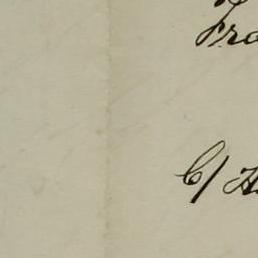 Fro
C/ H